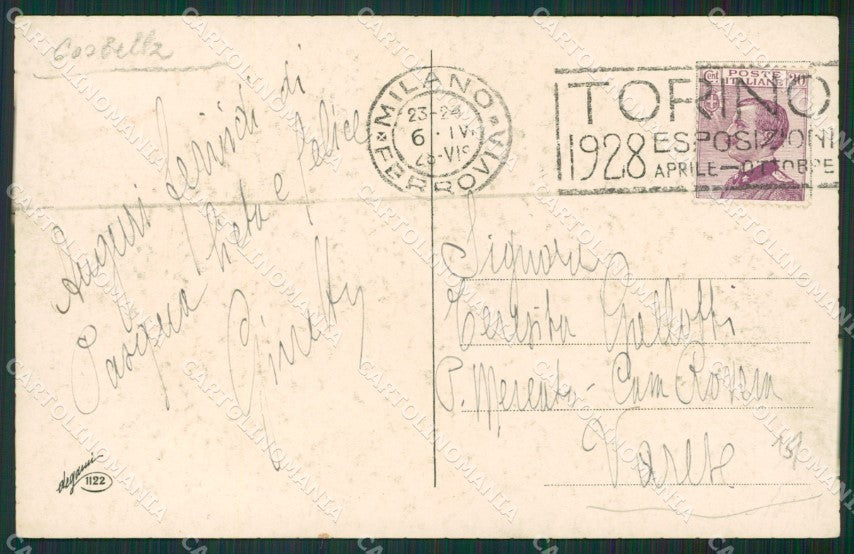 Corbella
MILANO
23-24
6 · IV
28-VI
FERROVIA
TORINO
1928 ESPOSIZIONI
APRILE—OTTOBRE
Cent 20
POSTE
ITALIANE
Auguri fervidi di
Pasqua lieta e felice
Ginetta
Signora
Teresita Galloffi
P. Mercato - Casa
Varese
degami
1122
CARTOLINOMANIA